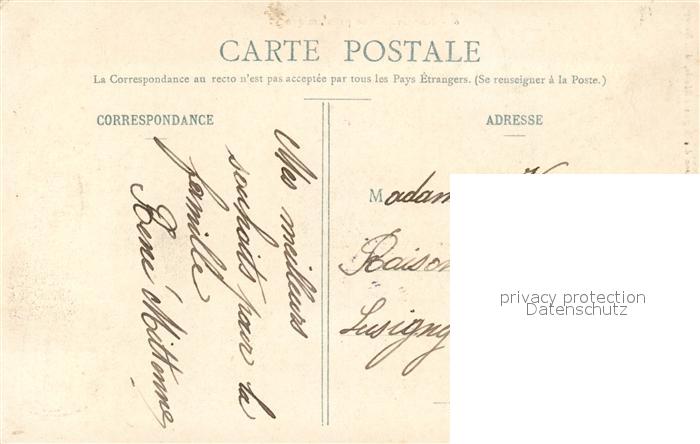 CARTE POSTALE
La Correspondance au recto n'est pas acceptée par tous les Pays Étrangers. (Se renseigner à la Poste.)
CORRESPONDANCE
ADRESSE
Mes meilleurs
souhaits pour la
famille
René Mittonne
Madam
Raison
Lusigny
privacy protection
Datenschutz